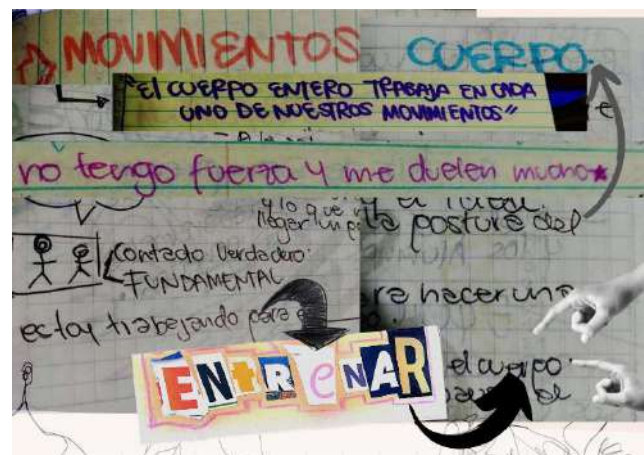 MOVIMIENTOS
CUERPO.
"El CUERPO ENTERO TRABAJA EN CADA
UNO DE NUESTROS MOVIMIENTOS"
e
no tengo fuerza y me duelen mucho
y lo que
llegar un
la postura del
Contacto Verdadero.
FUNDAMENTAL
ra hacer una
estoy trabajando para
ENTReNAR
el cuerpo.